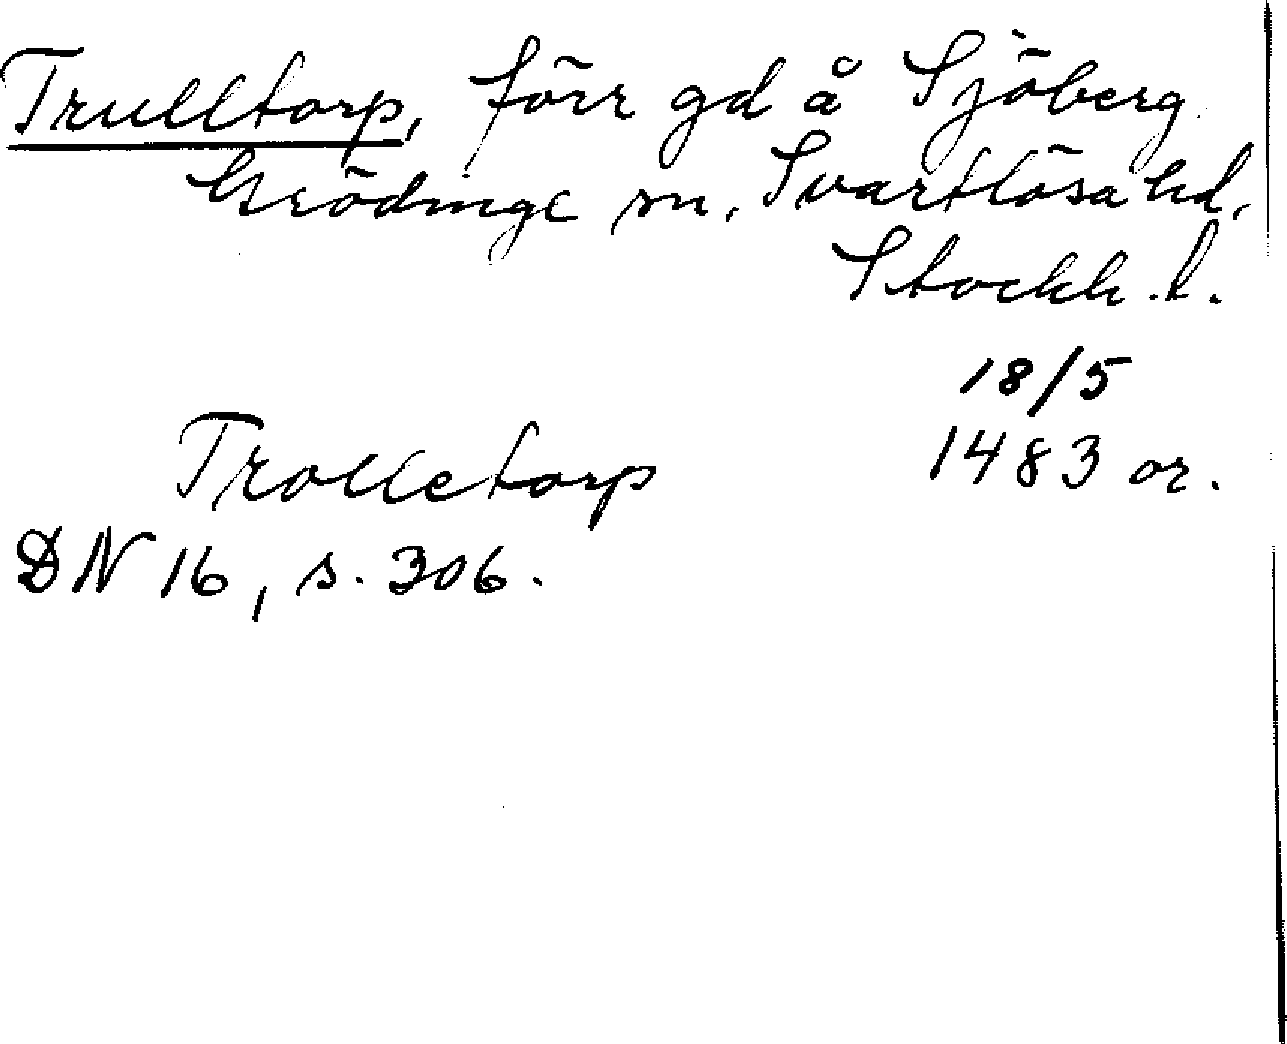 Trulltorp, förr gd å Sjöberg
Grödinge sn. Svartlösa hd,
Stockh. l.
18/5
Trolletorp 1483 or.
DN 16, s. 306.